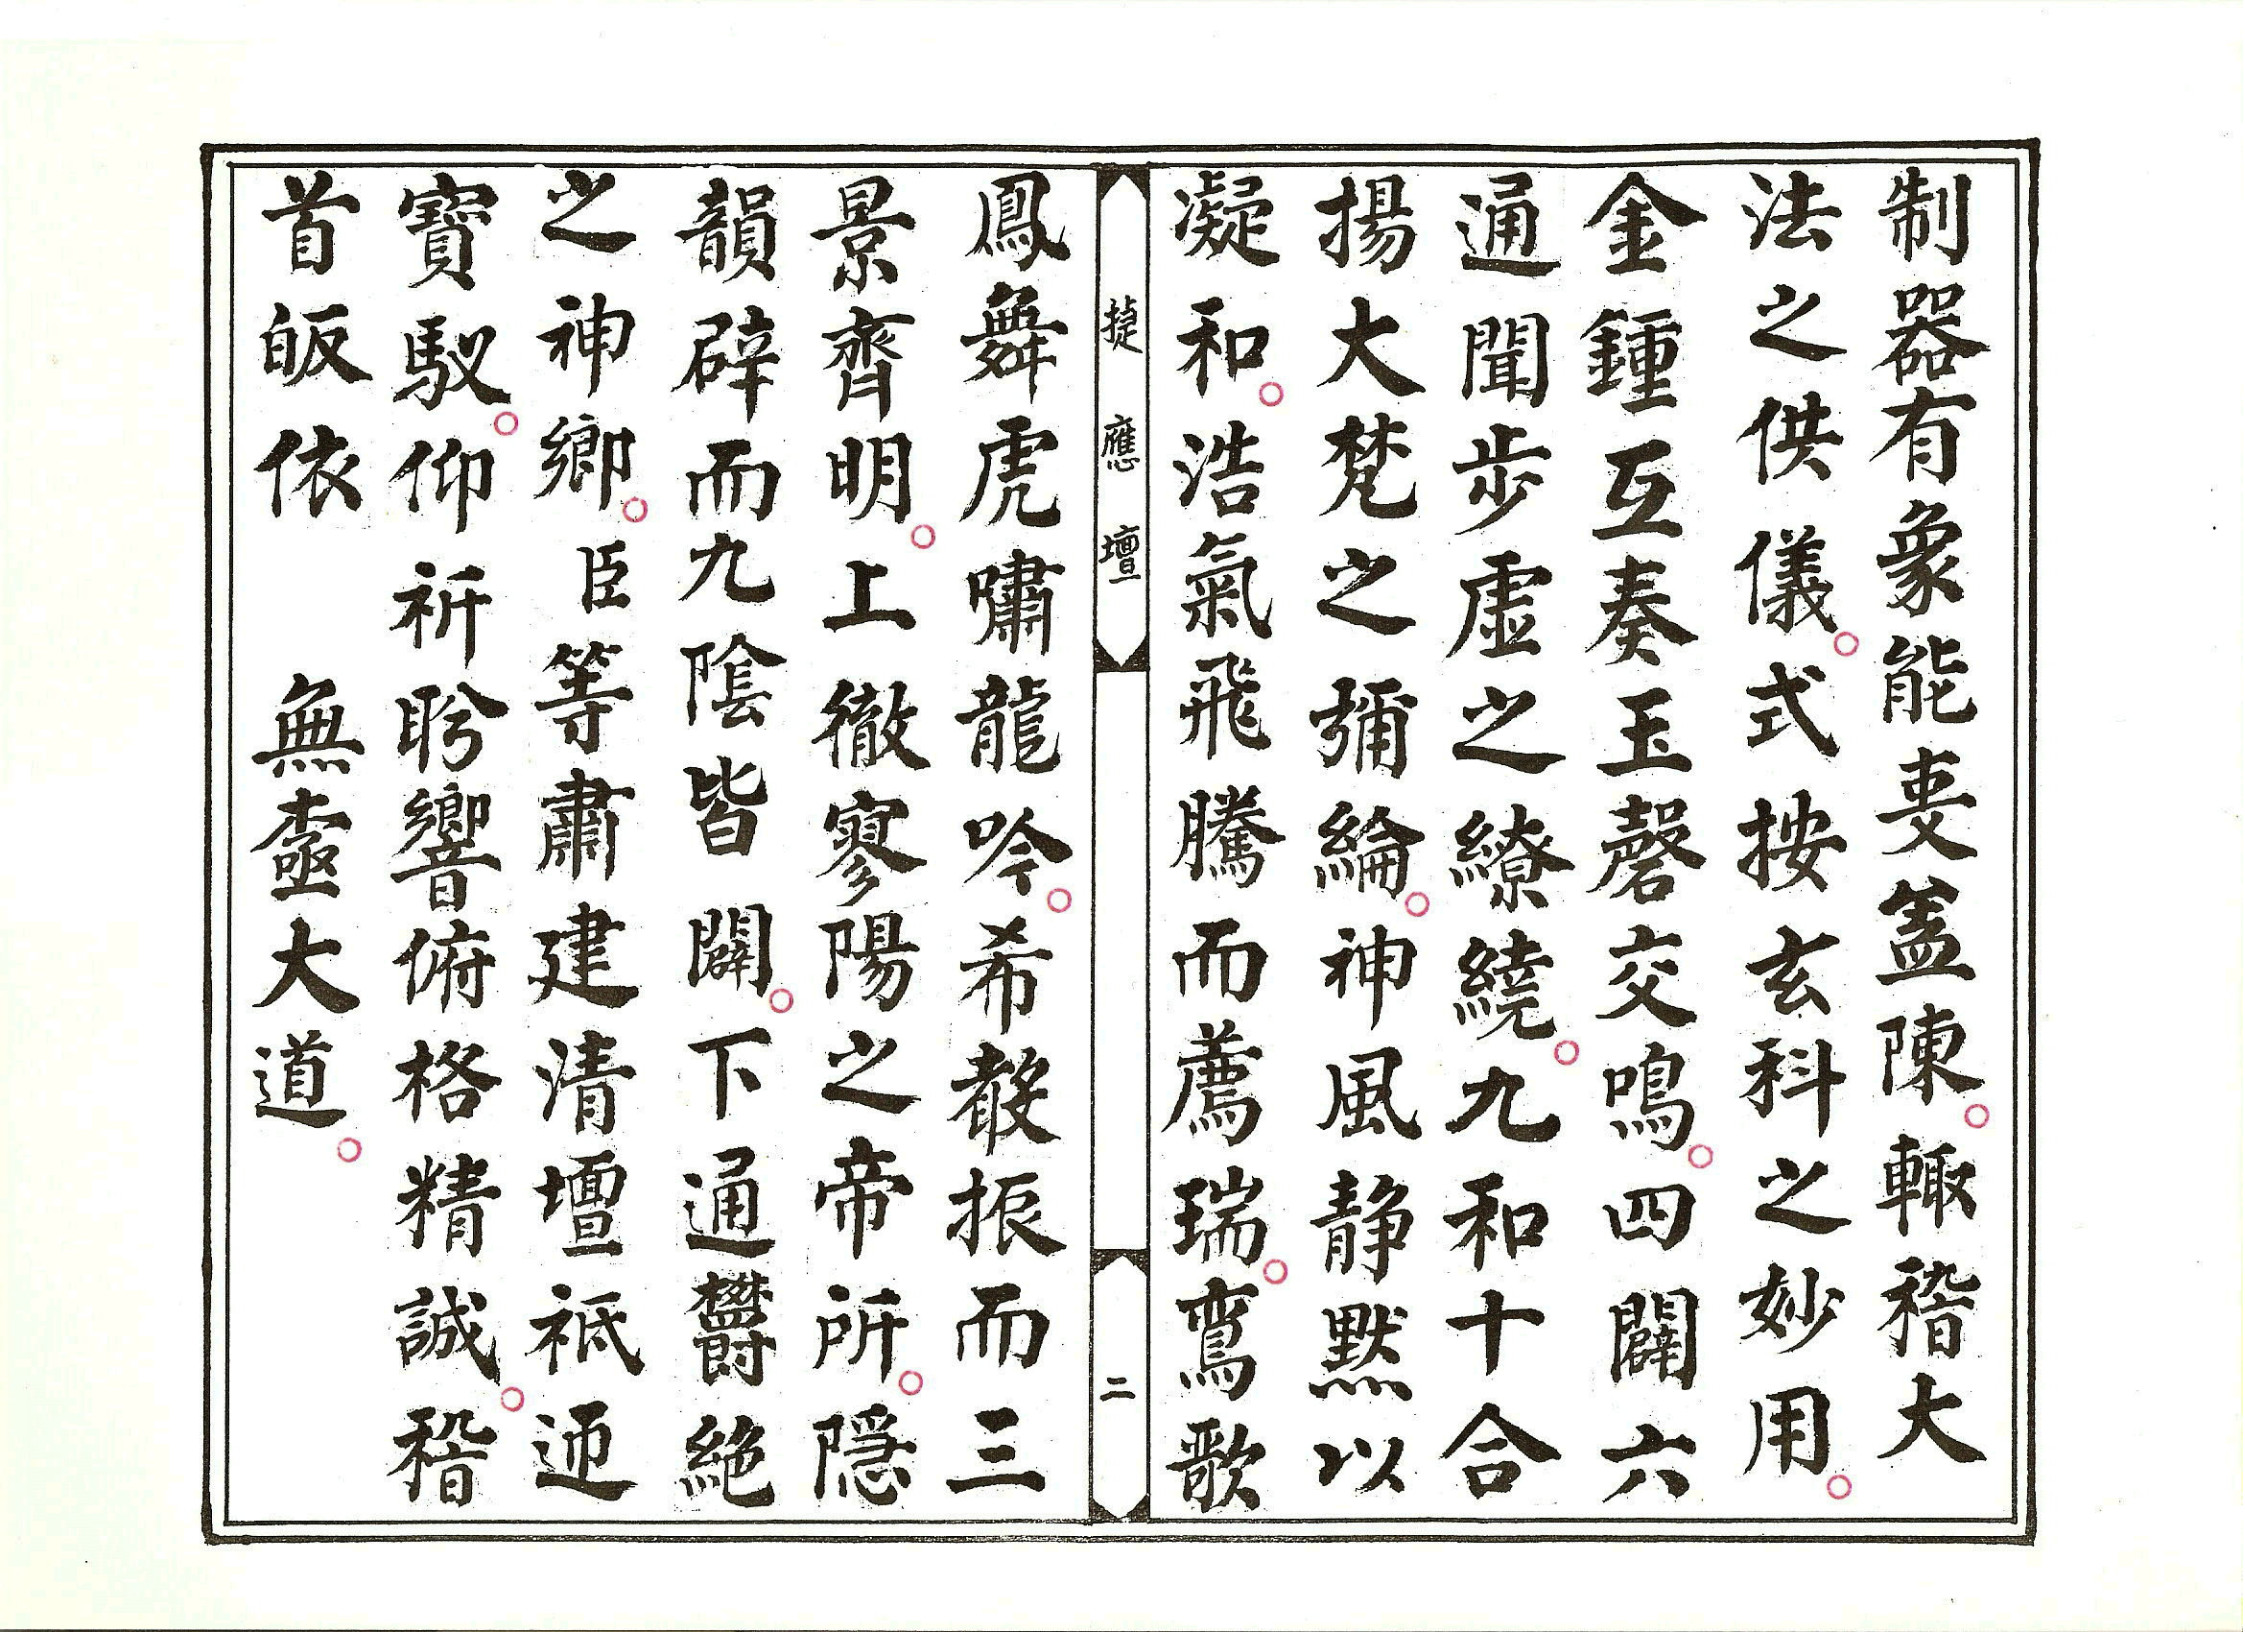 制器有象能叓盖陳。輙稽大
法之供儀。式按玄科之妙用。
金鍾互奏玉磬交鳴。四闢六
通聞步虛之繚繞。九和十合
揚大梵之彌綸。神風静默以
凝和。浩氣飛騰而薦瑞。鸞歌
捷應壇
二
鳳舞虎嘯龍吟。希聲振而三
景齊明。上徹寥陽之帝所。隠
韻辟而九陰皆闢。下通鬱絶
之神鄉。臣等肅建清壇祇迊
寶馭。仰祈肹響俯格精誠。稽
首皈依 無壼大道。